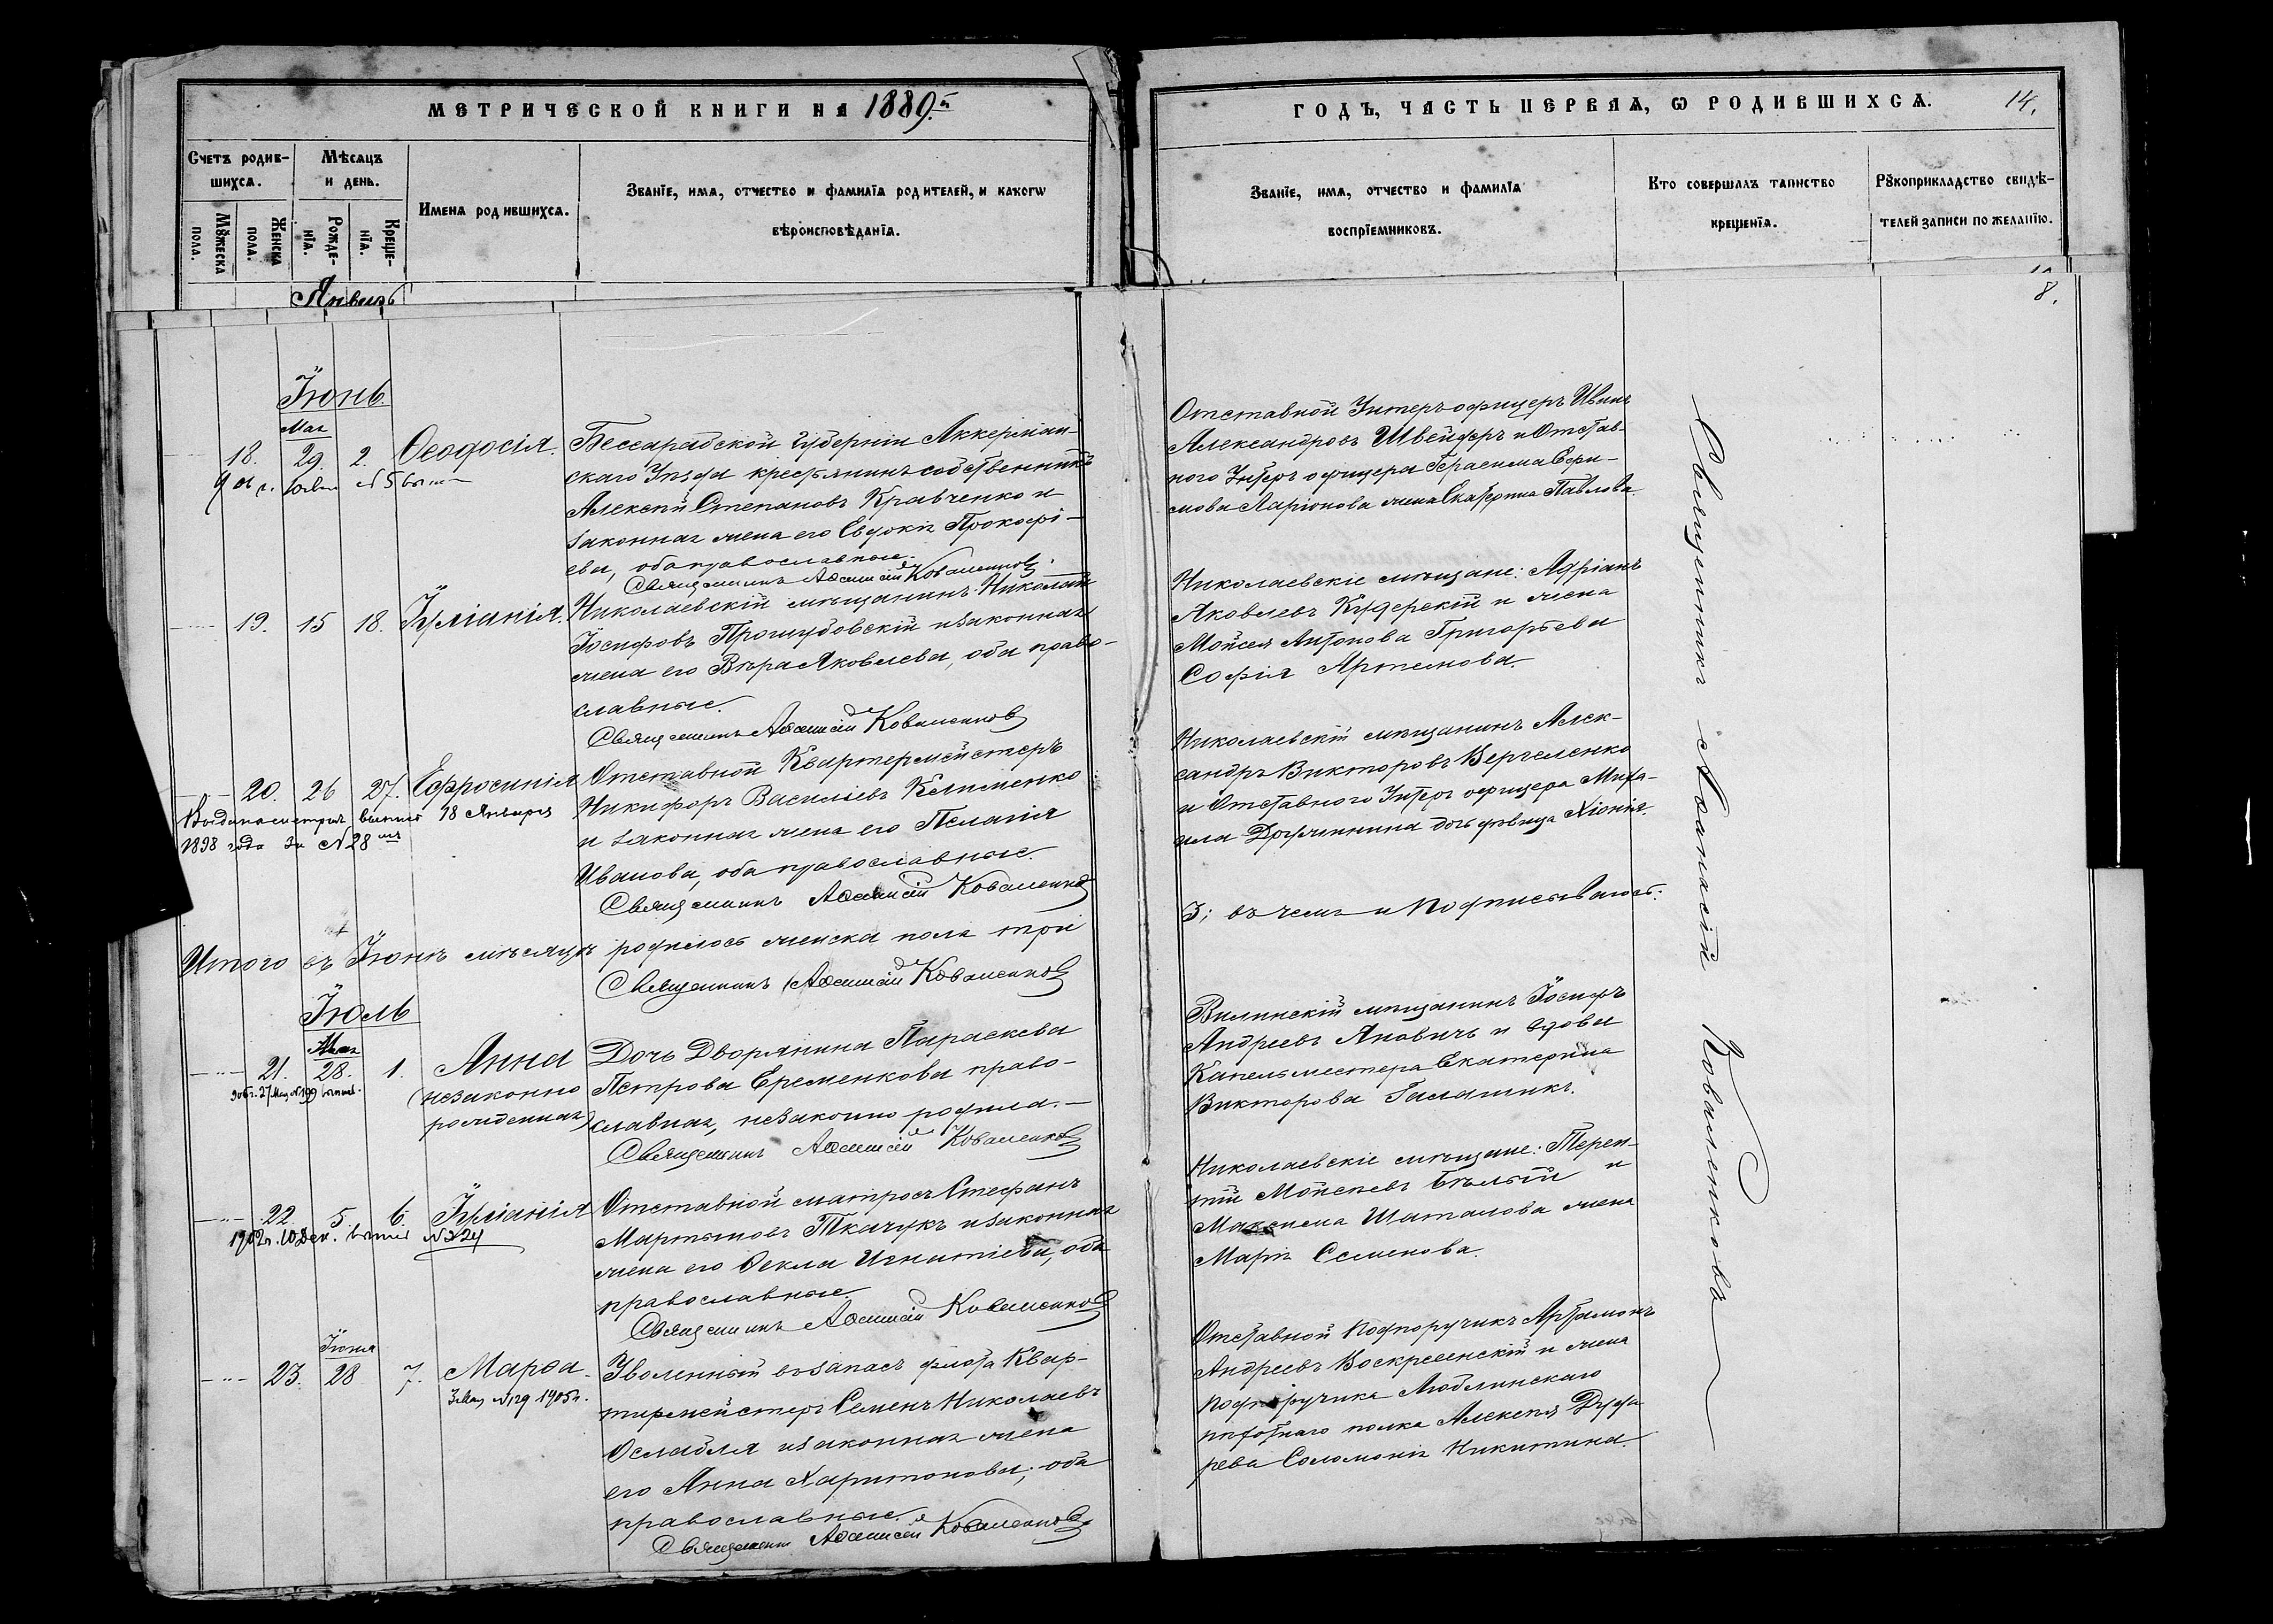 МЕТРИЧЕСКОЙ КНИГИ НА 1889.й
ГОДЪ, ЧАСТЬ ПЕРВАЯ, Ѡ РОДИВШИХСЯ.
14.
Счетъ родив-
шихся.
Мѣсяцъ
и день.
Имена родившихся.
Званїе, имя, отчество и фамилїя родителей, и какогѡ
вѣроисповѣданїя.
Мꙋжеска
пола.
Женска
пола.
Рожде-
нїя.
Креще-
нїя.
Званїе, имя, отчество и фамилїя
воспрїемниковъ.
Кто совершалъ таинство
крещенїя.
Рꙋкоприкладство свидѣ-
телей записи по желанїю.
Январь
8.
Іюнь
Мая
18. 29. 2. Ѳеодосія.
Бессарабской губерніи Аккерман-
скаго Уѣзда крестьянинъ собственникъ
Алексѣй Степановъ Кравченко и
законная жена его Евдокія Прокофі-
ева, оба православные.
Священникъ Аѳанасій Коваленковъ.
Отставной Унтеръ офицеръ Иванъ
Александровъ Швейферъ и Отстав-
ного Унтеръ офицера Герасима Ефи-
мова Ларіонова жена Екатерина Павлова.
19. 15 18. Іуліанія.
Николаевскій мѣщанинъ Николай
Іосифовъ Прошубовскій и законная
жена его Вѣра Яковлева, оба право-
славные.
Священникъ Аѳанасій Коваленковъ
Николаевскіе мѣщане: Адріанъ
Яковлевъ Кудерскій и жена
Мойсея Антонова Григорьева
Софія Артемова.
20. 26 27. Ефросинія
Выдана метрич. выпись 18 Января
1898 года за № 28
Отставной Квартермейстеръ
Никифоръ Васильевъ Клименко
и законная жена его Пелагія
Иванова, оба православные.
Священникъ Аѳанасій Коваленковъ
Николаевскій мѣщанинъ Алек-
сандръ Викторовъ Вергеленко
и Отставного Унтеръ офицера Миха-
ила Дружинина дочь дѣвица Хіонія.
Итого въ Іюнѣ мѣсяцѣ родилось женска пола три
3; въ чемъ и подписываюсь:
Священникъ Аѳанасій Коваленковъ
Іюль
21. 28. 1. Анна
(незаконно
рожденная)
Дочь Дворянина Параскева
Петрова Еременкова право-
славная, незаконно родила.
Священникъ Аѳанасій Коваленковъ
Виленскій мѣщанинъ Іосифъ
Андреевъ Яновичъ и вдова
Капельместера Екатерина
Викторова Галашикъ.
22. 5. 6. Іуліанія
1902г. 10 Дек. выпись № 324
Отставной матросъ Стефанъ
Мартыновъ Ткачукъ и законная
жена его Ѳекла Игнатіева, оба
православные.
Священникъ Аѳанасій Коваленковъ
Николаевскіе мѣщане: Терен-
тій Мойсеевъ Бѣлый и
Максима Шаталова жена
Марія Семенова.
Іюня
23. 28 7. Марѳа.
3 Мая № 129 1905г.
Уволенный въ запасъ флота Квар-
тирмейстеръ Семенъ Николаевъ
Ослабля и законная жена
его Анна Харитонова, оба
православные.
Священникъ Аѳанасій Коваленковъ
Отставной Подпоручикъ Артамонъ
Андреевъ Воскресенскій и жена
подпоручика Люблинскаго
пѣхотнаго полка Алексѣя Дудα
рева Соломонія Никитина.
Священникъ Аѳанасій Коваленковъ